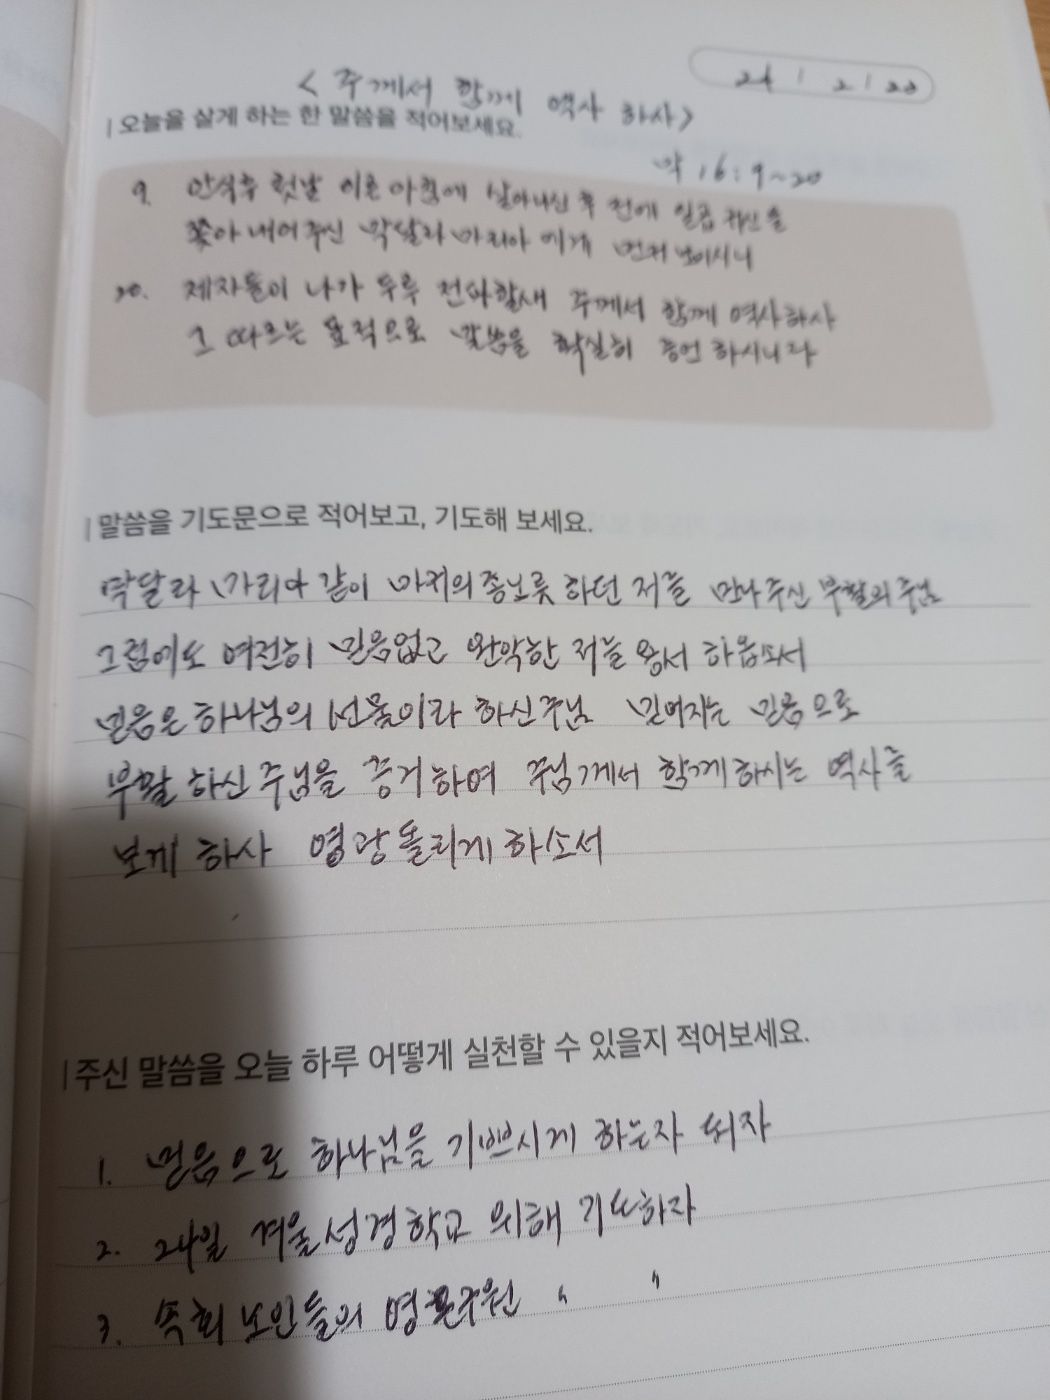 24 / 2 / 20
<주께서 함께 역사 하사>
오늘을 살게 하는 한 말씀을 적어보세요.
막 16:9~20
9. 안식후 첫날 이른 아침에 살아나신 후 전에 일곱 귀신을
쫓아 내어주신 막달라 마리아 에게 먼저 보이시니
20. 제자들이 나가 두루 전파할새 주께서 함께 역사하사
그 따르는 표적으로 말씀을 확실히 증언 하시니라
말씀을 기도문으로 적어보고, 기도해 보세요.
막달라 마리아 같이 마귀의 종노릇 하던 저를 만나주신 부활의 주님
그럼에도 여전히 믿음없고 완악한 저를 용서 하옵소서
믿음은 하나님의 선물이라 하신주님 믿어지는 믿음으로
부활 하신 주님을 증거하여 주님께서 함께하시는 역사를
보게 하사 영광돌리게 하소서
주신 말씀을 오늘 하루 어떻게 실천할 수 있을지 적어보세요.
1. 믿음으로 하나님을 기쁘시게 하는자 되자
2. 24일 겨울성경학교 위해 기도하자
3. 속회 노인들의 영혼구원 〃 〃